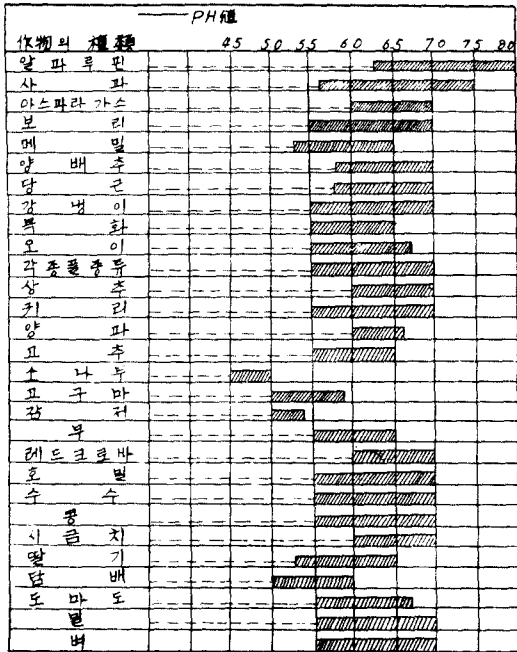 PH値
作物의 種類 4.5 5.0 5.5 6.0 6.5 7.0 7.5 8.0
알파루핀
사파
아스파라가스
보리
메밀
양배추
당근
강냉이
목화
오이
각종풀종류
상추
귀리
양파
고추
소나무
고구마
감저
무
레드크로바
호밀
수수
콩
시금치
딸기
담배
도마도
밀
벼